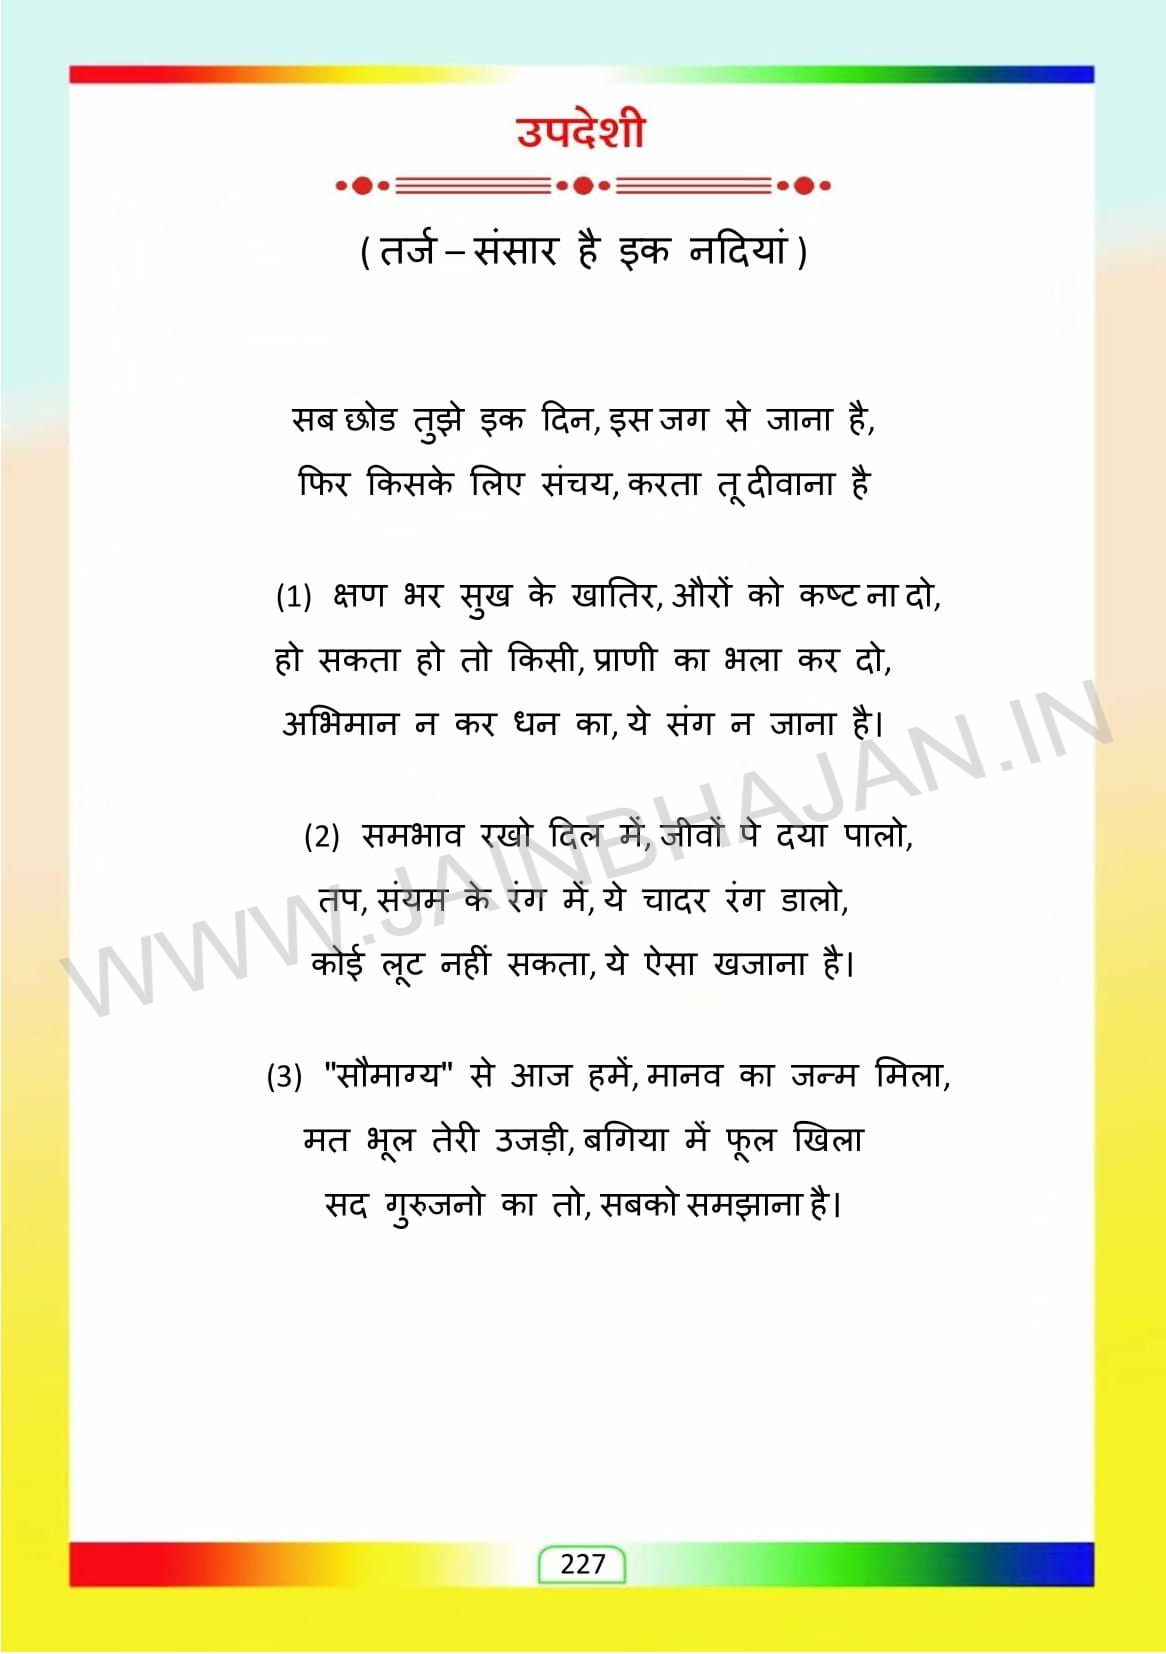 उपदेशी
( तर्ज – संसार है इक नदियां )
सब छोड तुझे इक दिन, इस जग से जाना है,
फिर किसके लिए संचय, करता तू दीवाना है
(1) क्षण भर सुख के खातिर, औरों को कष्ट ना दो,
हो सकता हो तो किसी, प्राणी का भला कर दो,
अभिमान न कर धन का, ये संग न जाना है।
(2) समभाव रखो दिल में, जीवों पे दया पालो,
तप, संयम के रंग में, ये चादर रंग डालो,
कोई लूट नहीं सकता, ये ऐसा खजाना है।
(3) "सौमाग्य" से आज हमें, मानव का जन्म मिला,
मत भूल तेरी उजड़ी, बगिया में फूल खिला
सद गुरुजनो का तो, सबको समझाना है।
WWW.JAINBHAJAN.IN
227